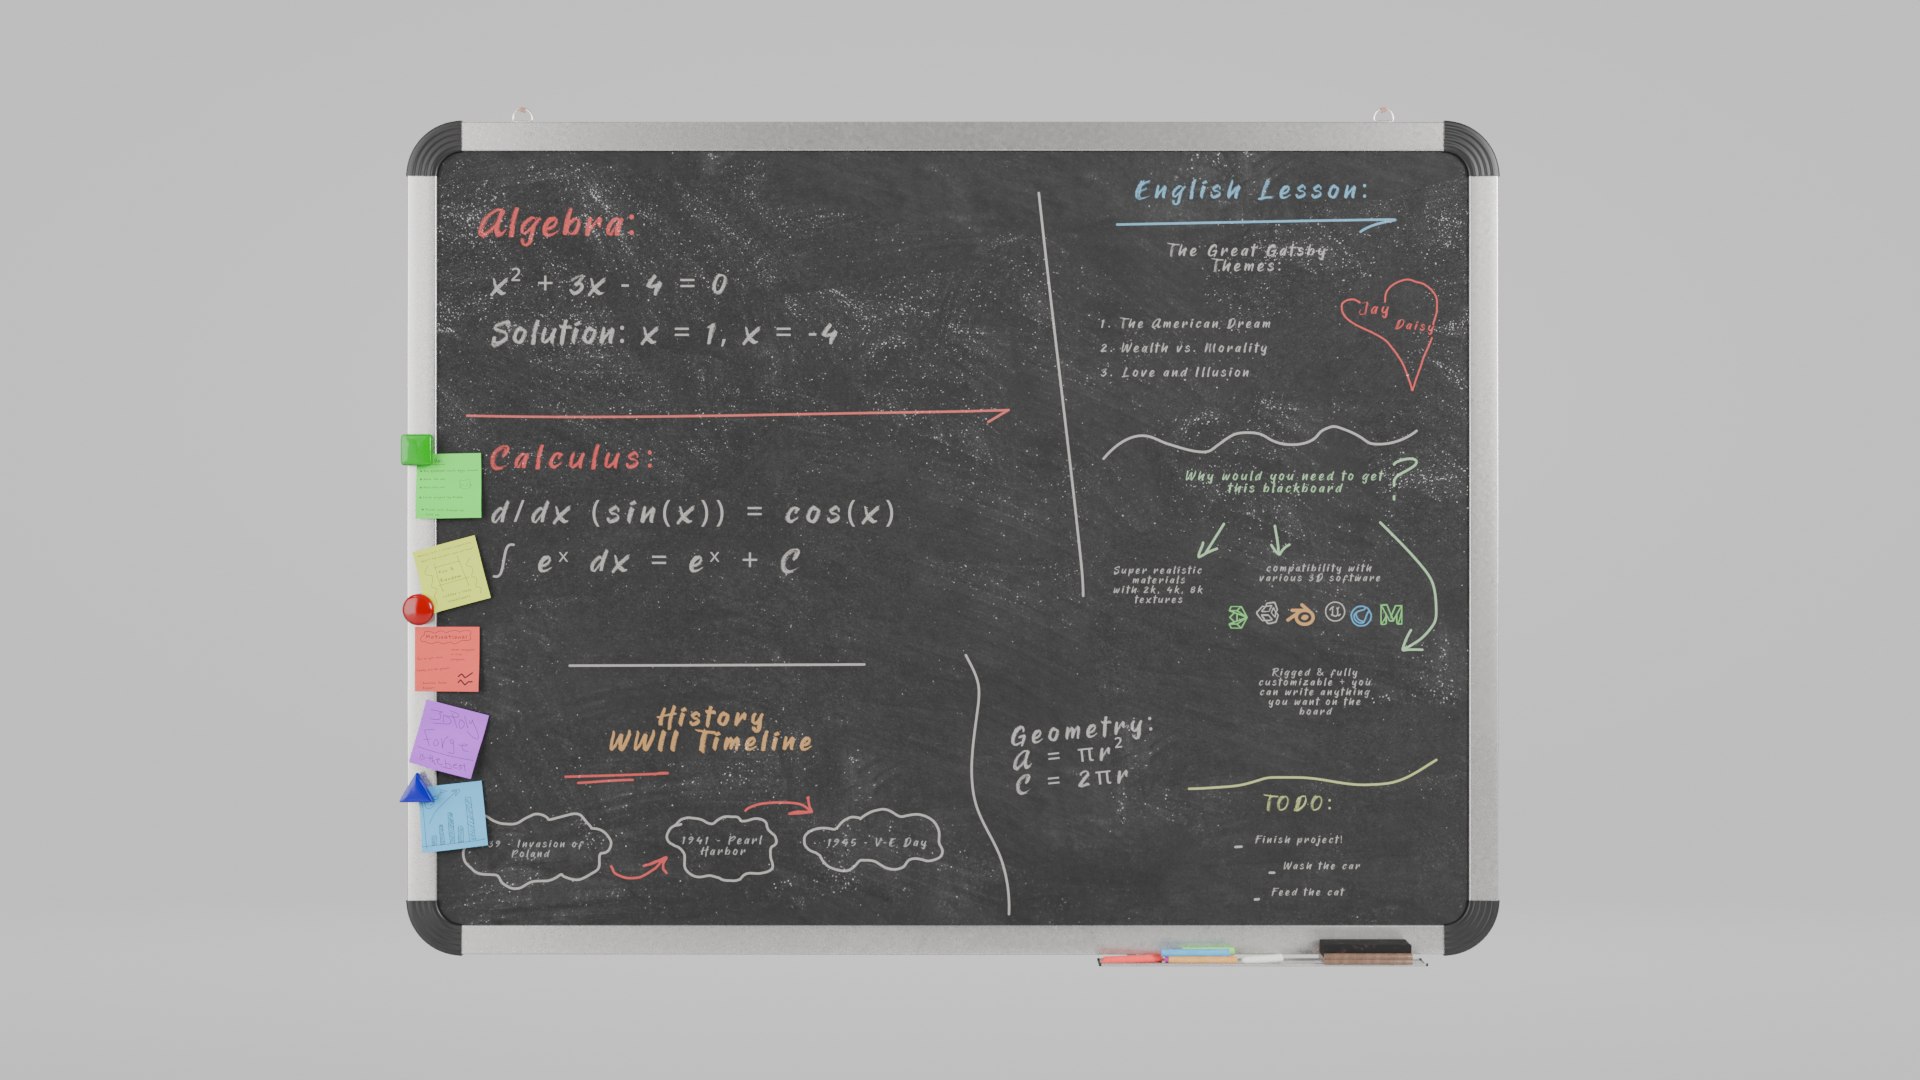 Algebra:
x² + 3x - 4 = 0
Solution: x = 1, x = -4
Calculus:
d/dx (sin(x)) = cos(x)
∫ eˣ dx = eˣ + C
History
WWII Timeline
39 - Invasion of
Poland
1941 - Pearl
Harbor
1945 - V-E Day
Geometry:
A = πr²
C = 2πr
English Lesson:
The Great Gatsby
Themes:
1. The American Dream
2. Wealth vs. Morality
3. Love and Illusion
Jay
Daisy
Why would you need to get
this blackboard ?
Super realistic
materials
with 2k, 4k, 8k
textures
compatibility with
various 3D software
Rigged & fully
customizable + you
can write anything
you want on the
board
TODO:
- Finish project!
- Wash the car
- Feed the cat
Motivational
Forge